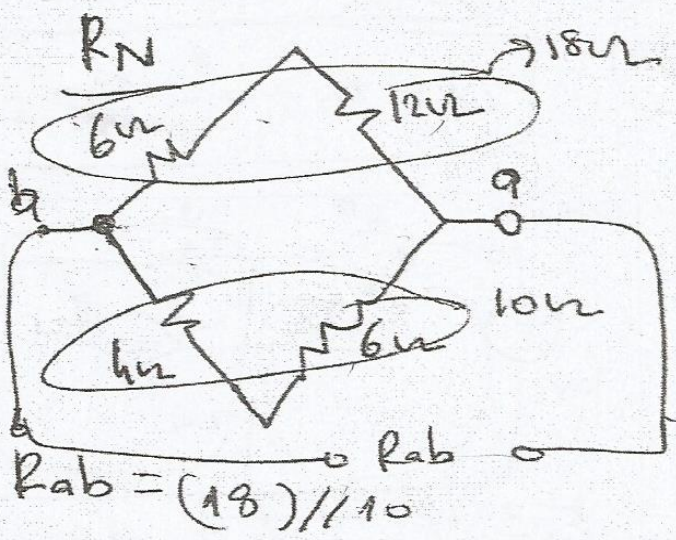 RN
18Ω
6Ω
12Ω
b
a
10Ω
4Ω
6Ω
b
Rab
Rab = (18)//10